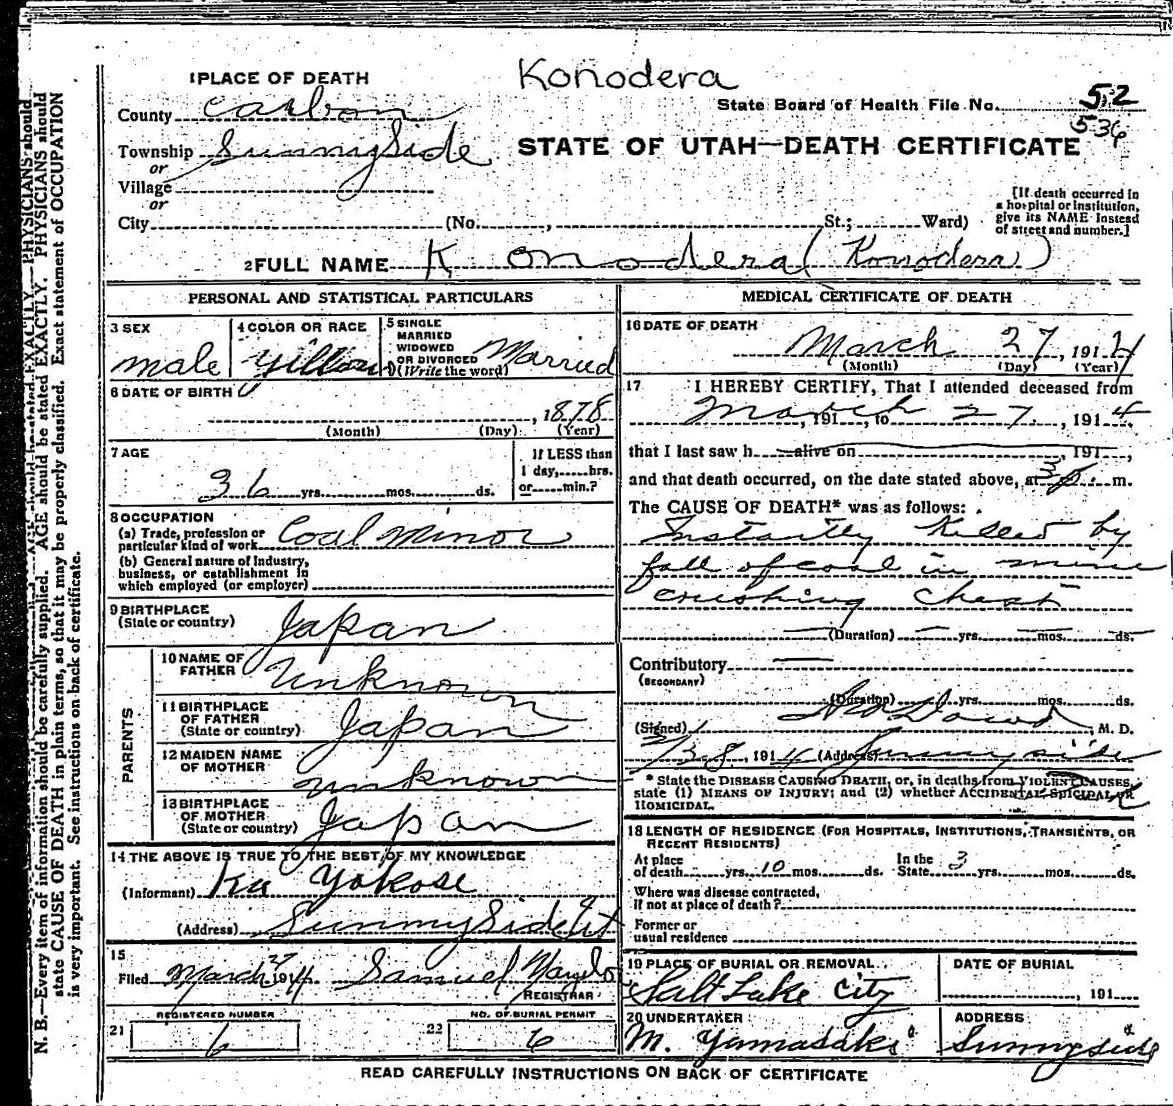 Konodera
1 PLACE OF DEATH
County Carbon
State Board of Health File No. 52
536
Township SunnySide
or
STATE OF UTAH—DEATH CERTIFICATE
Village
or
City (No. , St.; Ward)
[If death occurred in
a hospital or institution,
give its NAME instead
of street and number.]
2 FULL NAME K onodera (Konodera)
PERSONAL AND STATISTICAL PARTICULARS
3 SEX
male
4 COLOR OR RACE
Yillow
5 SINGLE
MARRIED
WIDOWED
OR DIVORCED
(Write the word)
Married
6 DATE OF BIRTH
, 1878
(Month) (Day) (Year)
7 AGE
36 yrs. mos. ds.
If LESS than
1 day, hrs.
or min.?
8 OCCUPATION
(a) Trade, profession or
particular kind of work Coal Minor
(b) General nature of industry,
business, or establishment in
which employed (or employer)
9 BIRTHPLACE
(State or country) Japan
PARENTS
10 NAME OF
FATHER Unknown
11 BIRTHPLACE
OF FATHER
(State or country) Japan
12 MAIDEN NAME
OF MOTHER unknown
13 BIRTHPLACE
OF MOTHER
(State or country) Japan
14 THE ABOVE IS TRUE TO THE BEST OF MY KNOWLEDGE
(Informant) Ka Yokose
(Address) SunnySide Ut
15
Filed March 27 1914 Samuel
REGISTRAR
REGISTERED NUMBER
21 6
NO. OF BURIAL PERMIT
22 6
MEDICAL CERTIFICATE OF DEATH
16 DATE OF DEATH
March 27, 1914
(Month) (Day) (Year)
17 I HEREBY CERTIFY, That I attended deceased from
March , 191 , to 27, 1914
that I last saw h alive on , 191 ,
and that death occurred, on the date stated above, at 3 p. m.
The CAUSE OF DEATH* was as follows:
Instantly Killed by
fall of coal in mine
crushing Chest
(Duration) yrs. mos. ds.
Contributory
(SECONDARY)
(Duration) yrs. mos. ds.
(Signed) , M. D.
1914 (Address) Sunnyside
* State the DISEASE CAUSING DEATH, or, in deaths from VIOLENT CAUSES,
state (1) MEANS OF INJURY; and (2) whether ACCIDENTAL, SUICIDAL OR
HOMICIDAL.
18 LENGTH OF RESIDENCE (FOR HOSPITALS, INSTITUTIONS, TRANSIENTS, OR
RECENT RESIDENTS)
At place
of death yrs. 10 mos. ds.
In the
State 3 yrs. mos. ds.
Where was disease contracted,
If not at place of death?
Former or
usual residence
19 PLACE OF BURIAL OR REMOVAL
Salt Lake City
DATE OF BURIAL
, 191
20 UNDERTAKER
M. Yamasaki
ADDRESS
Sunnyside
READ CAREFULLY INSTRUCTIONS ON BACK OF CERTIFICATE
N. B.—Every item of information should be carefully supplied. AGE should be stated EXACTLY. PHYSICIANS should
state CAUSE OF DEATH in plain terms, so that it may be properly classified. Exact statement of OCCUPATION
is very important. See instructions on back of certificate.